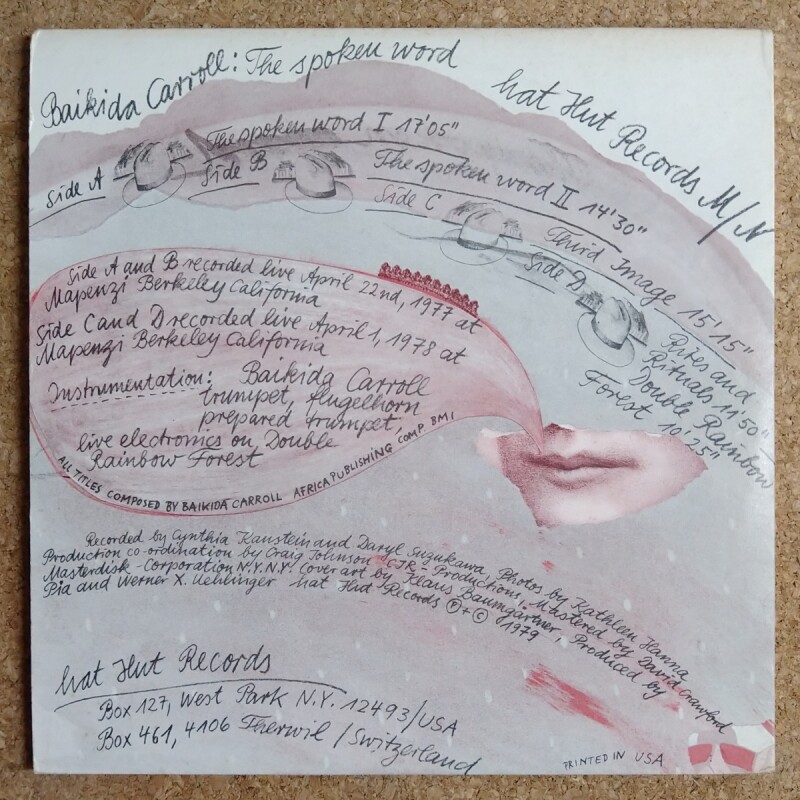 Baikida Carroll: The spoken word
hat Hut Records M/N
Side A
The spoken word I 17'05"
Side B
The spoken word II 14'30"
Side C
Third Image 15'15"
Side D
Rites and
Rituals 11'50"
Double Rainbow
Forest 10'25"
Side A and B recorded live April 22nd, 1977 at
Mapenzi Berkeley California
Side C and D recorded live April 1, 1978 at
Mapenzi Berkeley California
Instrumentation: Baikida Carroll
trumpet, flugelhorn
prepared trumpet,
live electronics on Double
Rainbow Forest
ALL TITLES COMPOSED BY BAIKIDA CARROLL AFRICA PUBLISHING COMP. BMI
Recorded by Cynthia Kanstein and Daryl Suzukawa, Photos by Kathleen Hanna
Production co-ordination by Craig Johnson CJR-Productions, Mastered by David Crawford
Masterdisk-Corporation N.Y. N.Y. Cover art by Klaus Baumgärtner, Produced by
Pia and Werner X. Uehlinger hat Hut Records ℗ + © 1979
hat Hut Records
Box 127, West Park N.Y. 12493/USA
Box 461, 4106 Therwil / Switzerland
PRINTED IN USA